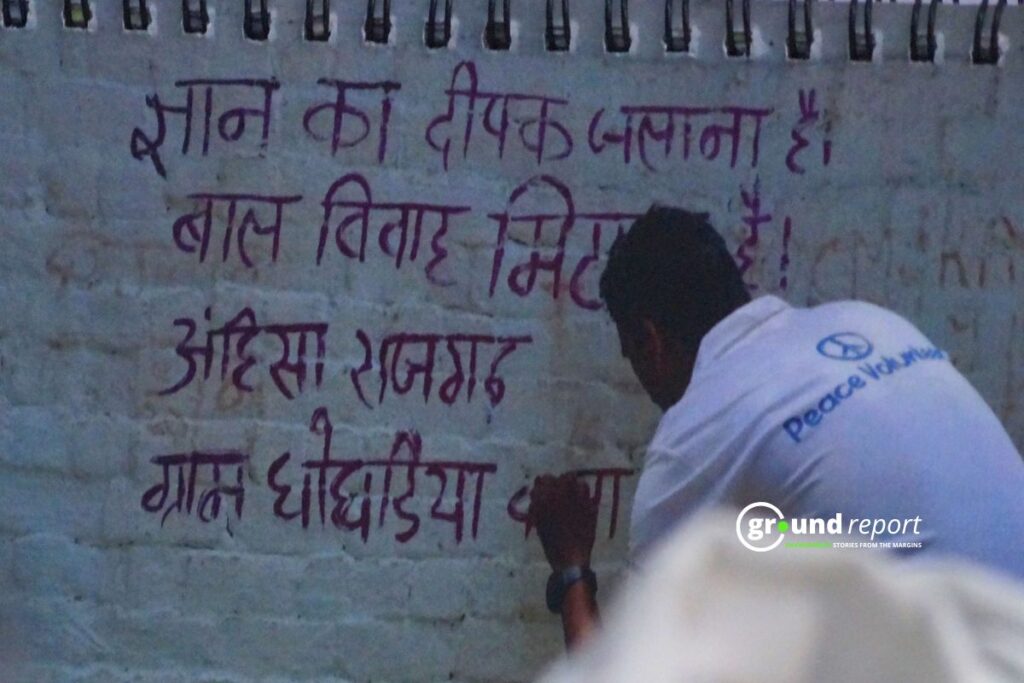 ज्ञान का दीपक जलाना है।
बाल विवाह है।
अंहिसा राजगढ़
ग्राम घोघडिया
Peace Volunteer
ground report
STORIES FROM THE MARGINS